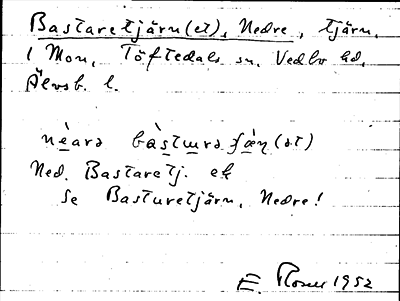 Bastaretjärn(et), Nedre, tjärn,
i Mon, Töftedals sn. Vedbo hd,
Älvsb. l.
nèarə bàstɯrə ʃæ̀ɳ(ət)
Ned. Bastaretj. ek
Se Basturetjärn, Nedre!
E. 1952